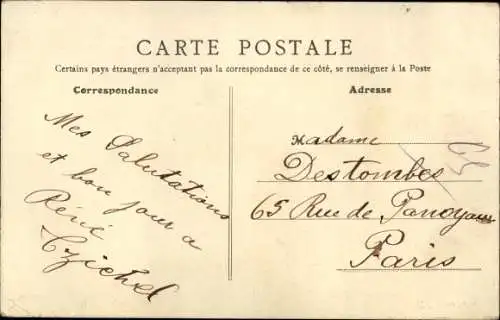 CARTE POSTALE
Certains pays étrangers n'acceptant pas la correspondance de ce côté, se renseigner à la Poste
Correspondance
Adresse
Mes Salutations
et bon jour a
Réné
Madame
Destombes
65 Rue de
Paris